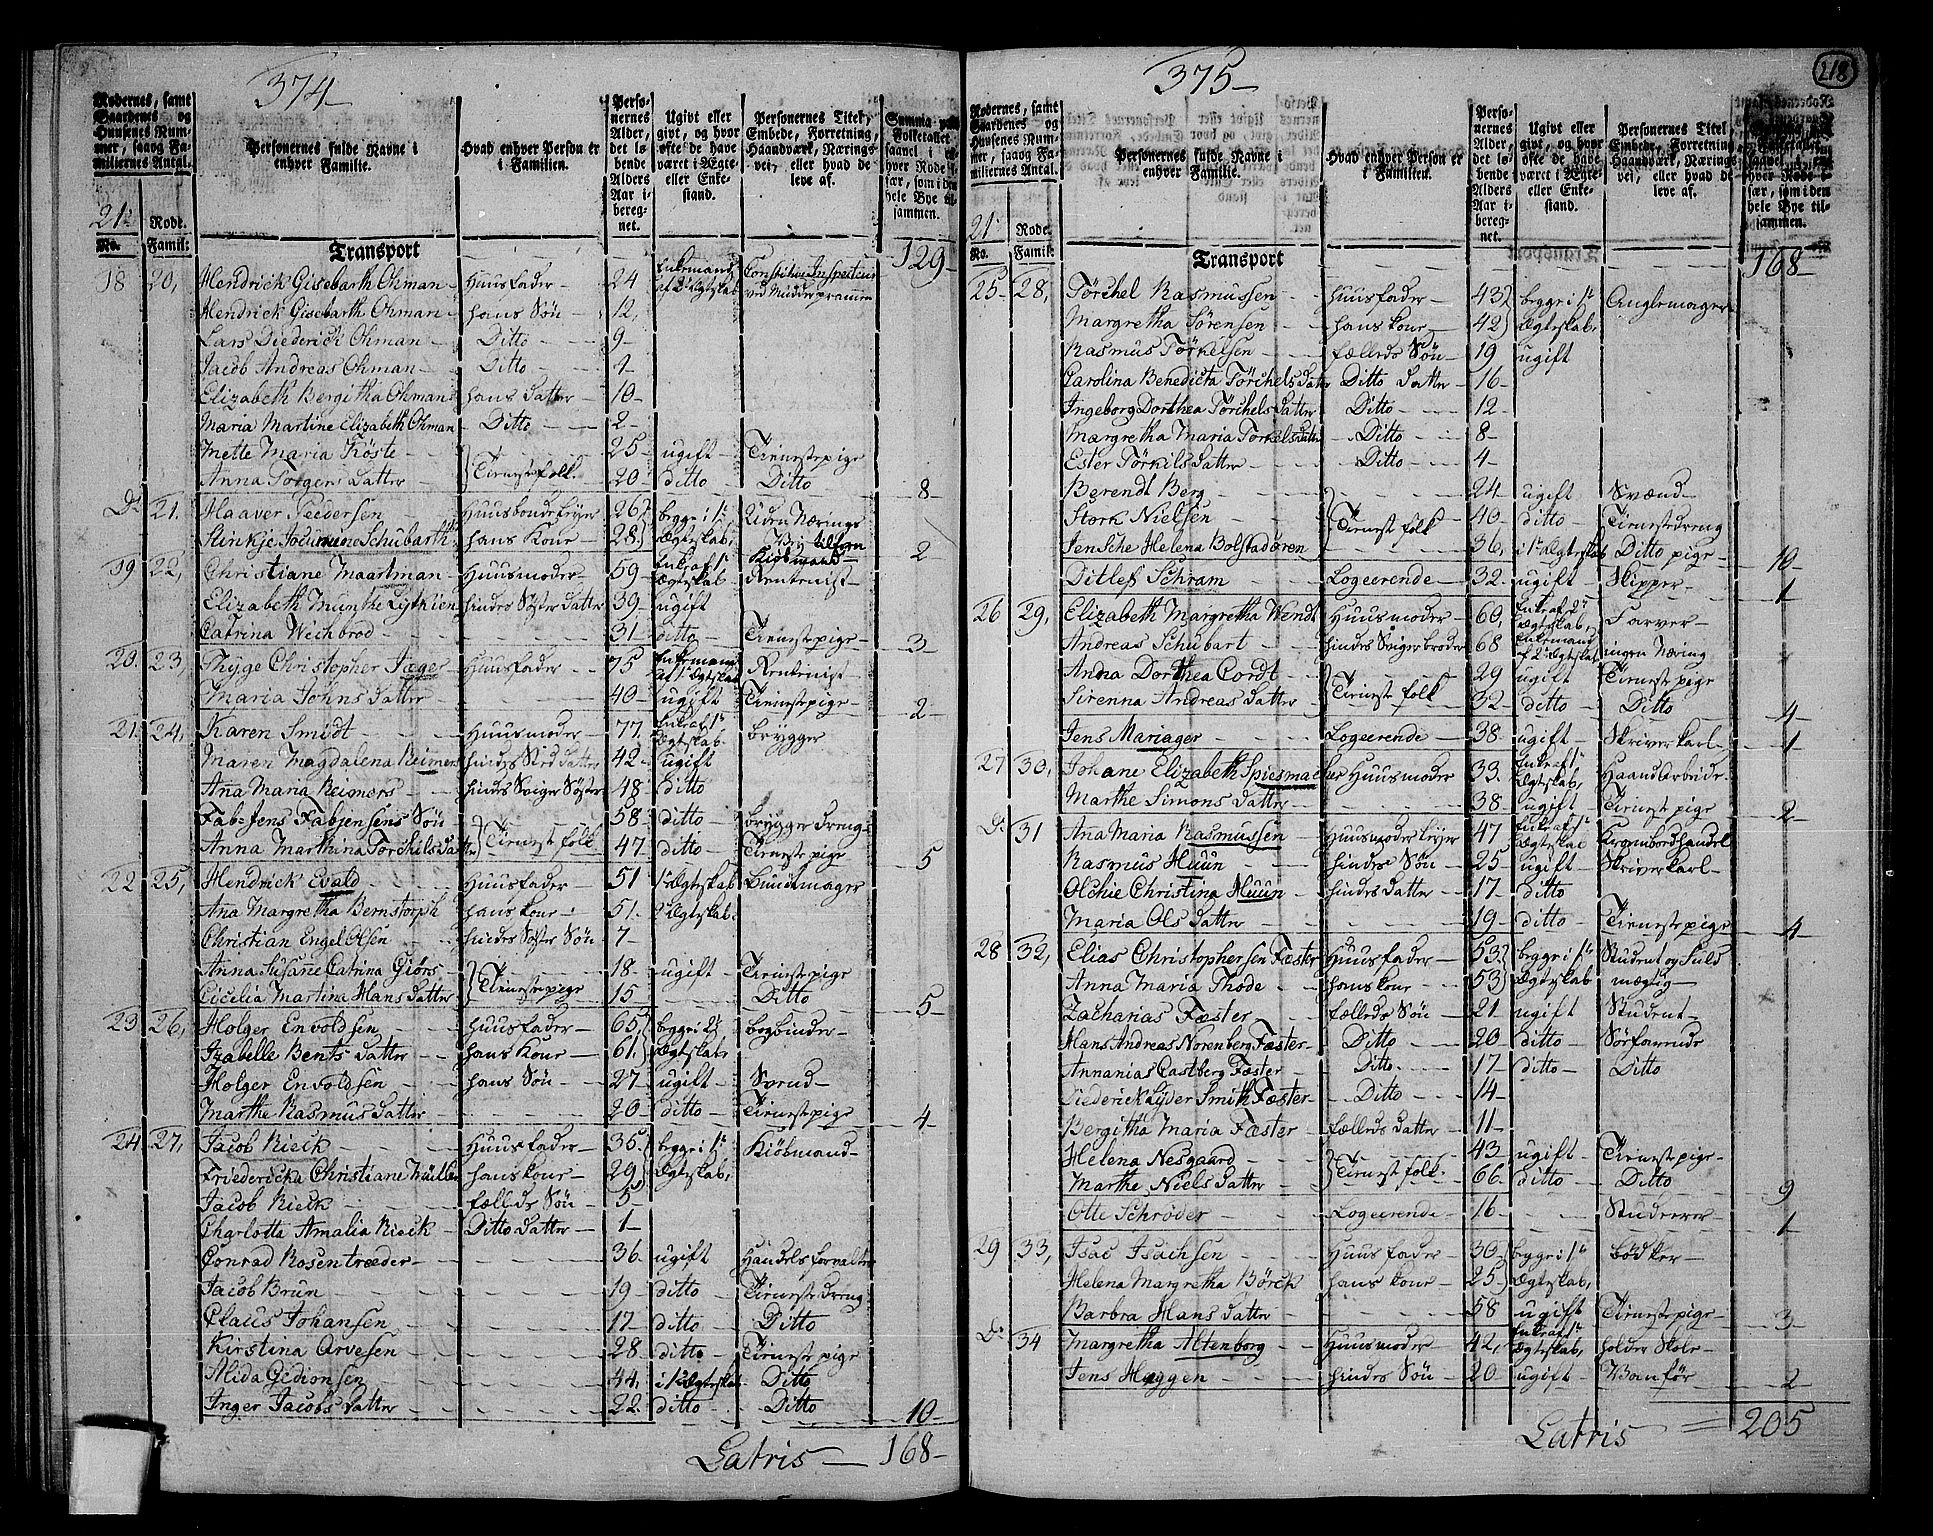 374
Rodernes, samt Gaardenes og Huusenes Nummer, saavog Familiernes Antal.
Personernes fulde Navne i enhver Familie.
Hvad enhver Person er i Familien.
Personernes Alder, det løbende Alders Aar iberegnet.
Ugivt eller givt, og hvor ofte de have været i Ægte- eller Enkestand.
Personernes Titel, Embede, Forretning, Haandværk, Næringsvei, eller hvad de leve af.
Summa paa Folketallet saavel i enhver Rode især, som i den hele Bye tilsammen.
21de Rode.
No. Famil:
Transport 129
18 20, Hendrick Gisebarth Ohman Huusfader 24 Enkemand af 1te Ægteskab Constitue Inspecteur ved Mudderprammen
Hendrick Gisebarth Ohman hans Søn 12,
Lars Diederick Ohman Ditto 9
Jacob Andreas Ohman Ditto 4
Elizabeth Bergitha Ohmans hans Datter 10
Maria Martine Elizabeth Ohman Ditto 2
Mette Maria Köste 25 ugift Tienestepige
Anna Torgers Datter Tienestefolk 20 ditto Ditto 8
Do 21. Haaver Peedersen Huusbonde leyer 26 begge i 1te Uden Nærings
Stinkje Schubarth hans Kone 28 Ægteskab, Vei tilforn Kiöbmand 2
19 22, Christiane Maartman Huusmoder 59 Enke af 1te Ægteskab Rentenist
Elizabeth Munthe Lythien hindes Søster Datter 39 ugift
Catrina Wechbrod 31 ditto Tienestepige 3
20. 23, Thÿge Christopher Jæger Huusfader 75 Enkemand af 1te Ægteskab Rentenist
Maria Johns Datter 40 ugift Tienestepige 2
21. 24, Karen Smidt Huusmoder 77. Enke af 1te Ægteskab Brygger
Maren Magdalena Reimers hindes Datter 42 ugift
Ana Maria Reimers hindes Sviger Søster 48 ditto
Fab-Jens Fabjensens Søn 58 ditto Brygger dreng
Anna Marthina Torchils Datter Tienestfolk 47 ditto Tieneste pige 5
22 25, Hendrick Evald Huusfader 51 1te Ægteskab Buntmager
Ana Margretha Bernstorph hans kone 51. 2 Ægteskab
Christian Engel Olsen hindes Søster Søn 7
Anna Susane Catrina Giörs 18 ugift Tienestepige
Cicelia Martina Hans Datter Tienestepige 15 Ditto 5
23 26, Holger Envoldsen Huusfader 65 begge i 2t Bogbinder
Izabelle Bents Datter hans Kone 61, Ægteskab
Holger Envoldsen hans Søn 27 ugift Svend
Marthe Rasmus Datter 20 ditto Tienestepige 4
24 27, Jacob Rieck Huusfader 36 begge i 1te Kiöbmand
Friedericka Christiane Müller hans kone 29 Ægteskab,
Jacob Rieck fælleds Søn 5
Charlotta Amalia Rieck Ditto Datter 1
Conrad Rosentræder 36 ugift Handels forvalter
Jacob Brun 19 ditto Tieneste dreng
Claus Johansen 17 ditto Ditto
Kirstina Arvesen 28 ditto Tieneste pige
Alida Gidionsen 44, i 1te Ægteskab Ditto
Inger Jacobs Datter 22 ditto Ditto 10
Latris 168
375
218
Rodernes, samt Gaardenes og Huusenes Nummer, saavog Familiernes Antal.
Personernes fulde Navne i enhver Familie.
Hvad enhver Person er i Familien.
Personernes Alder, det løbende Alders Aar iberegnet.
Ugivt eller givt, og hvor ofte de have været i Ægte- eller Enkestand.
Personernes Titel, Embede, Forretning, Haandværk, Næringsvei, eller hvad de leve af.
Folketallet saavel i enhver Rode især, som i den hele Bye tilsammen.
21de Rode.
No. Famil:
Transport 168
25 28, Törchel Rasmussen Huusfader 43 begge i 1te Anglemager
Margretha Sörensen hans kone 42 Ægteskab,
Rasmus Törkelsen fælleds Søn 19 ugift
Carolina Benedicta Törchels Datter Ditto Datter 16
Ingeborg Dorthea Törchels Datter Ditto 12
Margretha Maria Torkelsdatter Ditto 8
Ester Törkils Datter Ditto 4
Berendt Berg 24 ugift Svænd
Stork Nielsen Tienest folk 40 ditto Tienestedreng
Jensche Helena Bolstadören 36, i 1te Ægteskab Ditto pige 10
Ditlef Schram Logeerende 32 ugift Skipper 1
26 29, Elizabeth Margretha Wendt Huusmoder 60, Enke af 2de Ægteskab, Farver
Andreas Schubart hindes Sviger broder 68 Enkemand af 2de Ægteskab ingen Næring
Anna Dorthea Cordt 29 ugift Tienest pige
Sirenna Andreas Datter Tienest folk 32 ditto Ditto 4
Jens Mariager Logeerende 38 ugift Skriverkarl 1
27 30, Johane Elizabeth Spiesmacher Huusmoder 33 Enke af 1te Ægteskab, Haandarbeide
Marthe Simons Datter 38 ugift Tienest pige 2
Do 31 Ana Maria Rasmussen Huusmoder leyer 47 Enke af 1te Ægteskab Krambordhandel
Rasmus Huun hindes Søn 25 ugift Skriverkarl
Olchie Christina Huun hindes datter 17 ditto
Maria Ols Datter 19 ditto Tienestepige 4
28 32, Elias Christophersen Fæster Huusfader 53 begge i 1te Student og Fuld
Anna Maria Thode hans kone 53 Ægteskab mægtig
Zacharias Fæster fælleds Søn 21 ugift Student
Hans Andreas Norenberg Fæster Ditto 20 ditto Söefarende
Annanias Castberg Fæster Ditto 17 ditto Ditto
Diederick Lyder Smith Fæster Ditto 14
Bergitha Maria Fæster fælleds Datter 11
Helena Nesgaard 43 ugift Tienestpige
Marthe Niels Datter Tienest folk 66 ditto Ditto 9
Otte Schröder Logeerende 16 Studerer 1
29 33, Isac Isachsen Huusfader 30 begge i 1te Bödker
Helena Margretha Börck hans kone 25 Ægteskab,
Barbra Hans Datter 58 ugift Tienestepige 3
Do 34 Margretha Altenborg Huusmoder 42, Enke af 1te Ægteskab, holder Skole
Jens Haggen hindes Søn 20 ugift Vanför 2
Latris 205